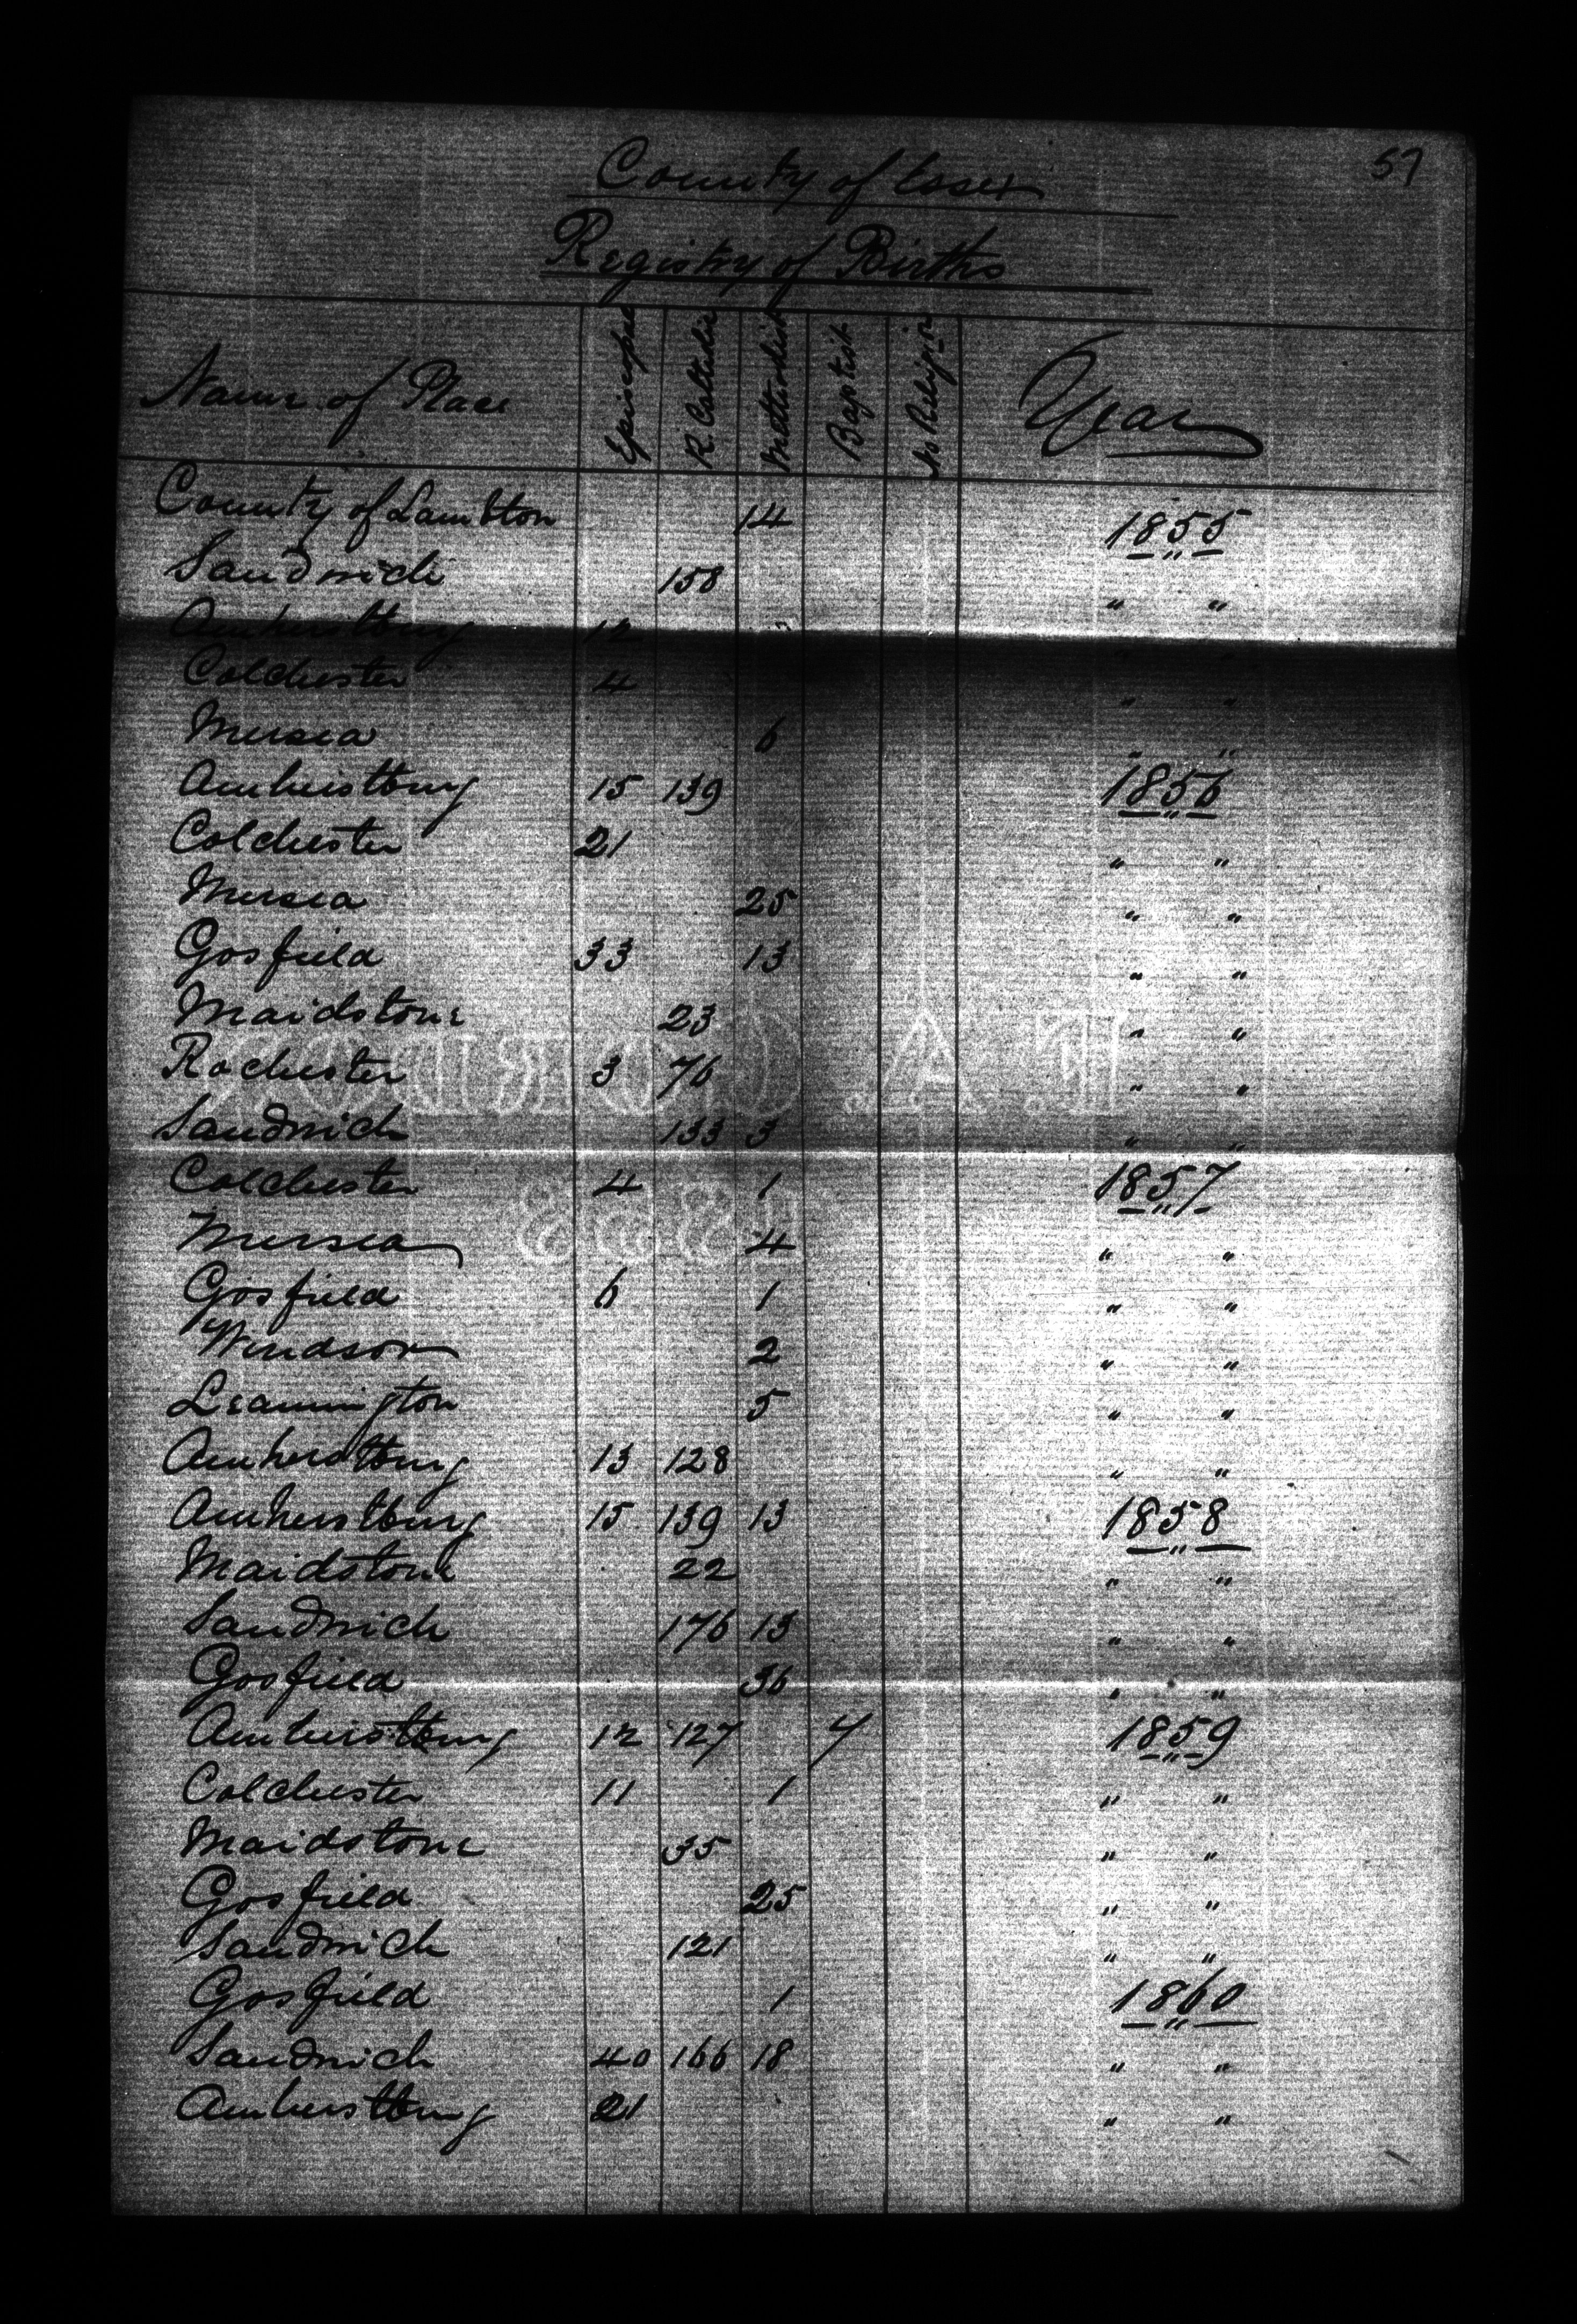 57
County of Essex
Registry of Births
Name of Place Episcopal R. Catholic Methodist Baptist No Religion Year
County of Lambton 14 1855
Sandwich 158 " "
Amherstburg 12 " "
Colchester 4 " "
Mersea 6 " "
Amherstburg 15 139 1856
Colchester 21 " "
Mersea 25 " "
Gosfield 33 13 " "
Maidstone 23 " "
Rochester 3 76 " "
Sandwich 133 3 " "
Colchester 4 1 1857
Mersea 4 " "
Gosfield 6 1 " "
Windsor 2 " "
Leamington 5 " "
Amherstburg 13 128 " "
Amherstburg 15 139 13 1858
Maidstone 22 " "
Sandwich 176 13 " "
Gosfield 36 " "
Amherstburg 12 127 4 1859
Colchester 11 1 " "
Maidstone 35 " "
Gosfield 25 " "
Sandwich 121 " "
Gosfield 1 1860
Sandwich 40 166 18 " "
Amherstburg 21 " "